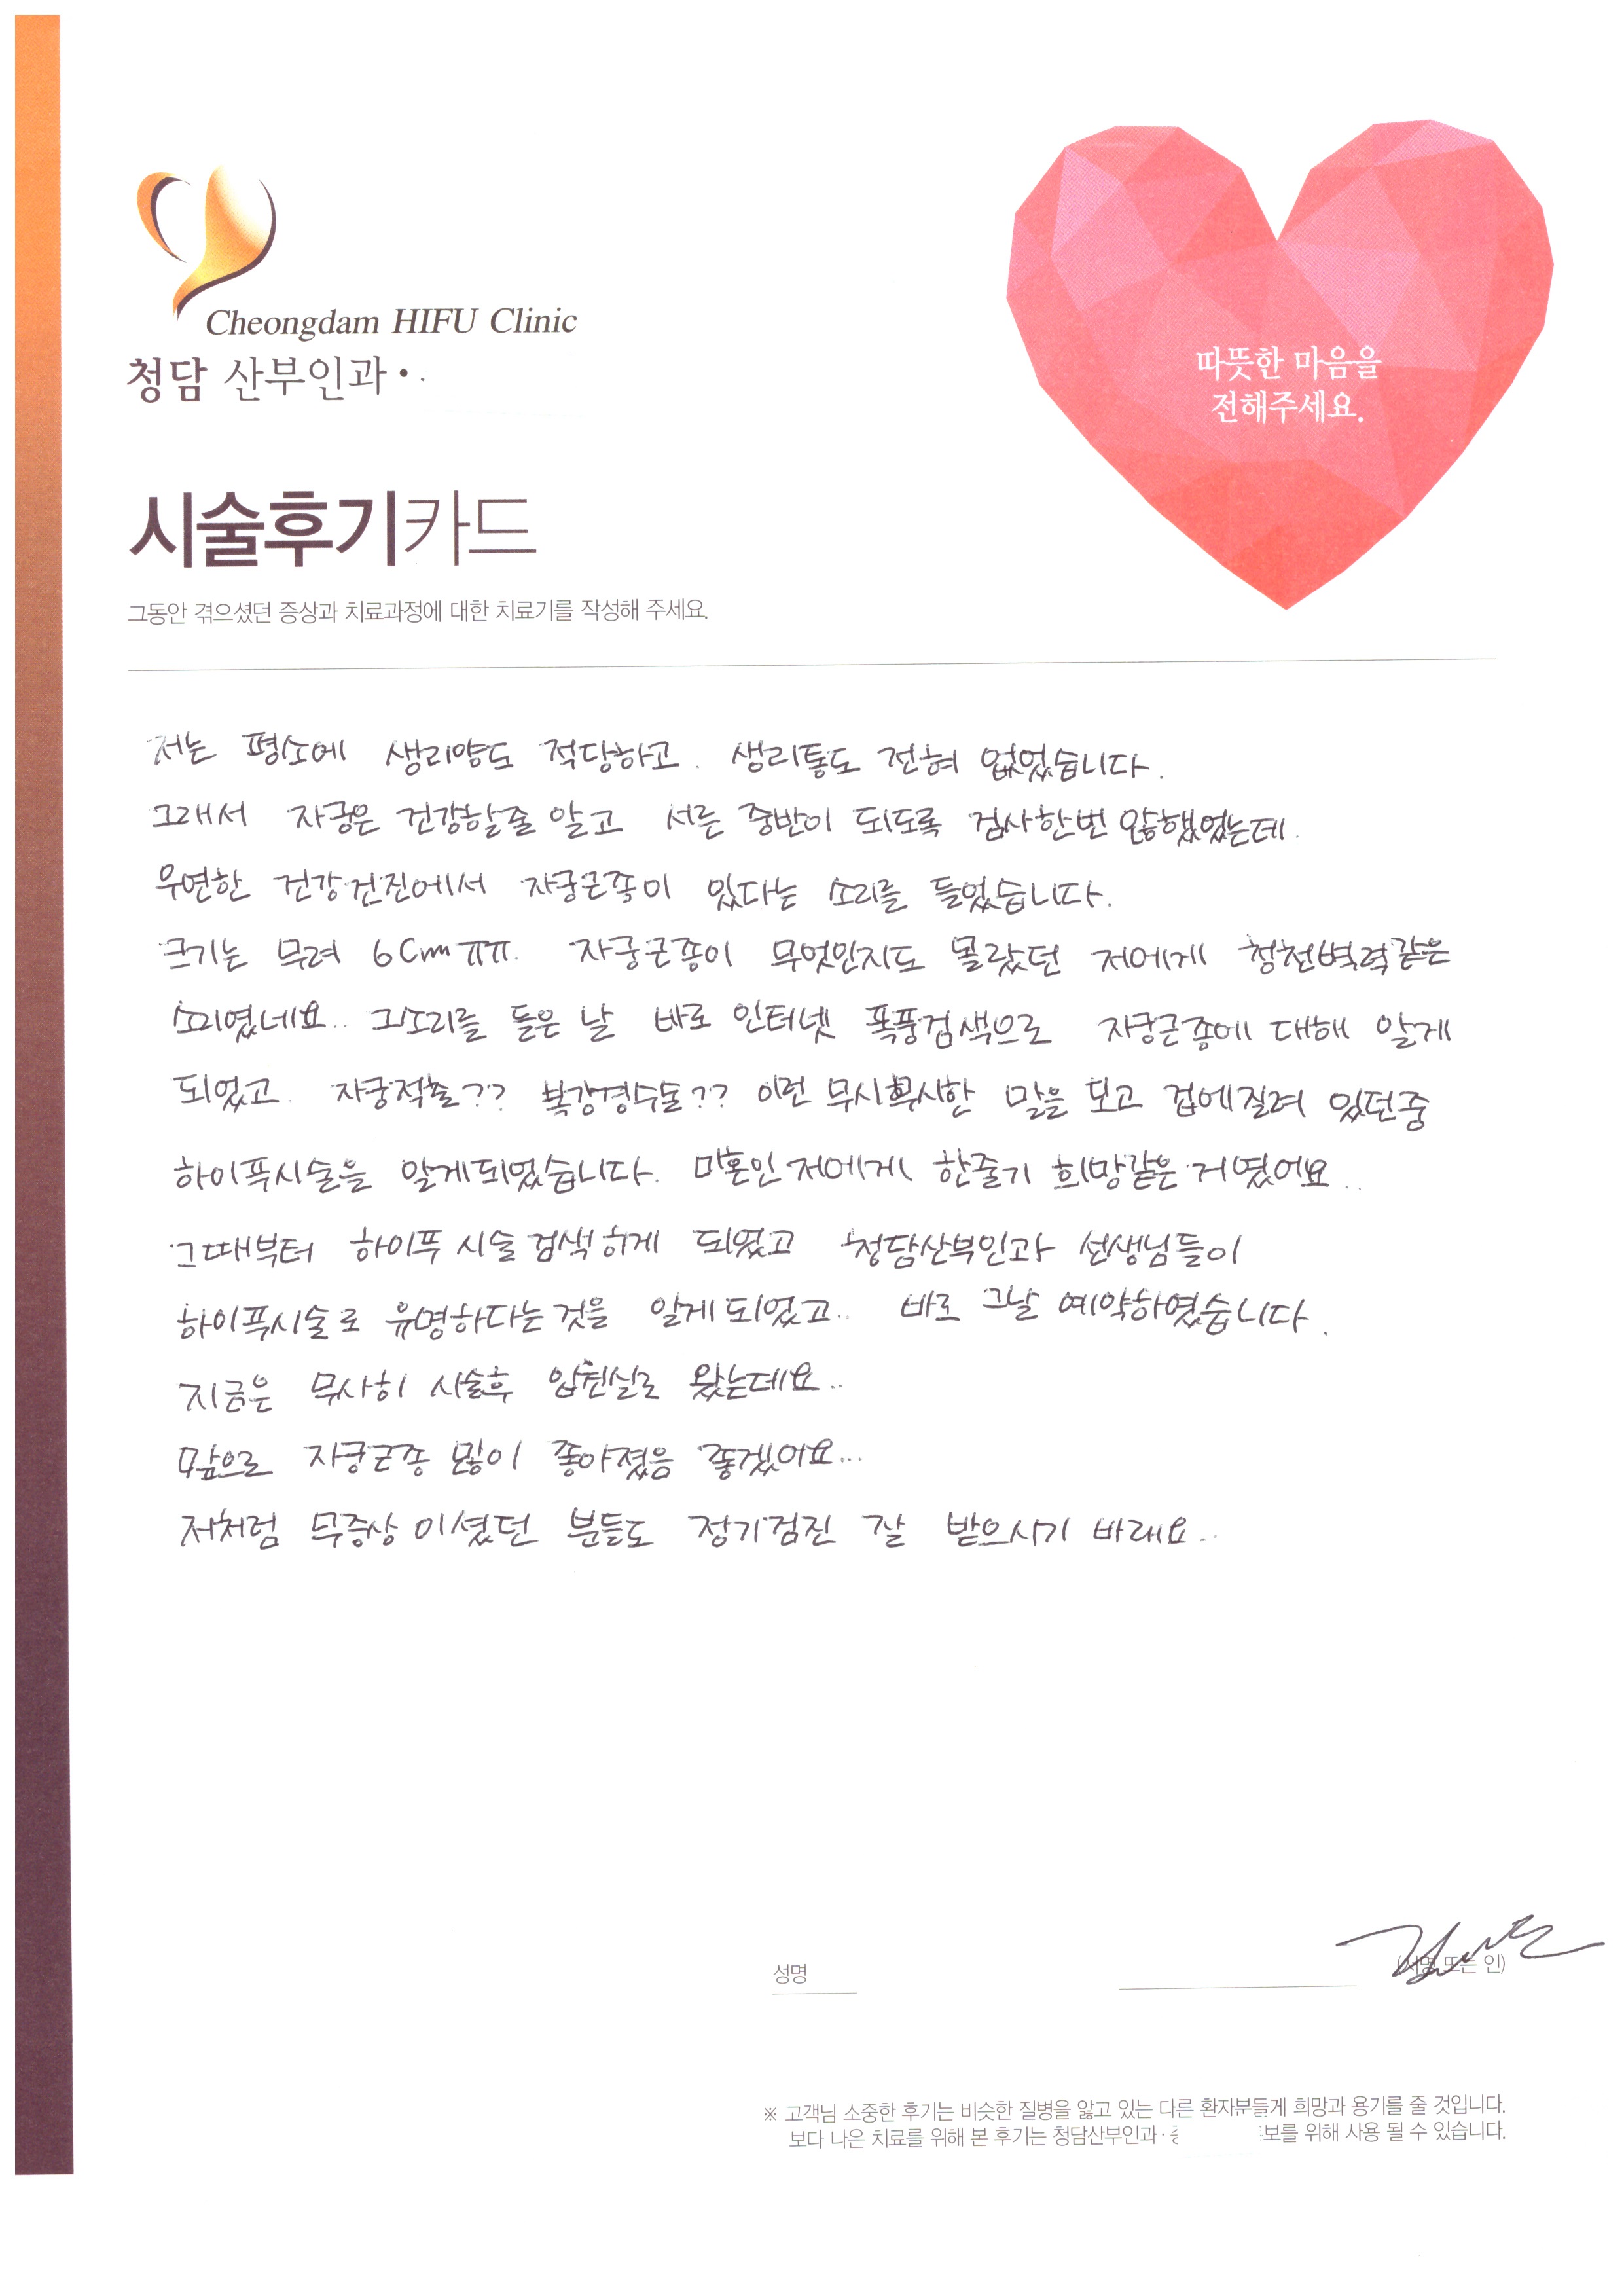 Cheongdam HIFU Clinic
청담 산부인과·
따뜻한 마음을
전해주세요.
시술후기카드
그동안 겪으셨던 증상과 치료과정에 대한 치료기를 작성해 주세요.
저는 평소에 생리양도 적당하고. 생리통도 전혀 없었습니다.
그래서 자궁은 건강할줄 알고 서른 중반이 되도록 검사한번 않했었는데.
우연한 건강건진에서 자궁근종이 있다는 소리를 들었습니다.
크기는 무려 6cm ㅠㅠ. 자궁근종이 무엇인지도 몰랐던 저에게 청천벽력같은
소리였네요.. 그소리를 들은 날 바로 인터넷 폭풍검색으로 자궁근종에 대해 알게
되었고. 자궁적출?? 복강경수술?? 이런 무시무시한 말을 보고 겁에질려 있던중
하이푸시술을 알게되었습니다. 미혼인 저에게 한줄기 희망같은 거였어요..
그때부터 하이푸 시술 검색하게 되었고 청담산부인과 선생님들이
하이푸시술로 유명하다는것을 알게되었고.. 바로 그날 예약하였습니다.
지금은 무사히 시술후 입원실로 왔는데요..
앞으로 자궁근종 많이 좋아졌음 좋겠어요...
저처럼 무증상 이셨던 분들도 정기검진 잘 받으시기 바래요..
성명
(서명 또는 인)
※ 고객님 소중한 후기는 비슷한 질병을 앓고 있는 다른 환자분들게 희망과 용기를 줄 것입니다.
보다 나은 치료를 위해 본 후기는 청담산부인과· 보를 위해 사용 될 수 있습니다.